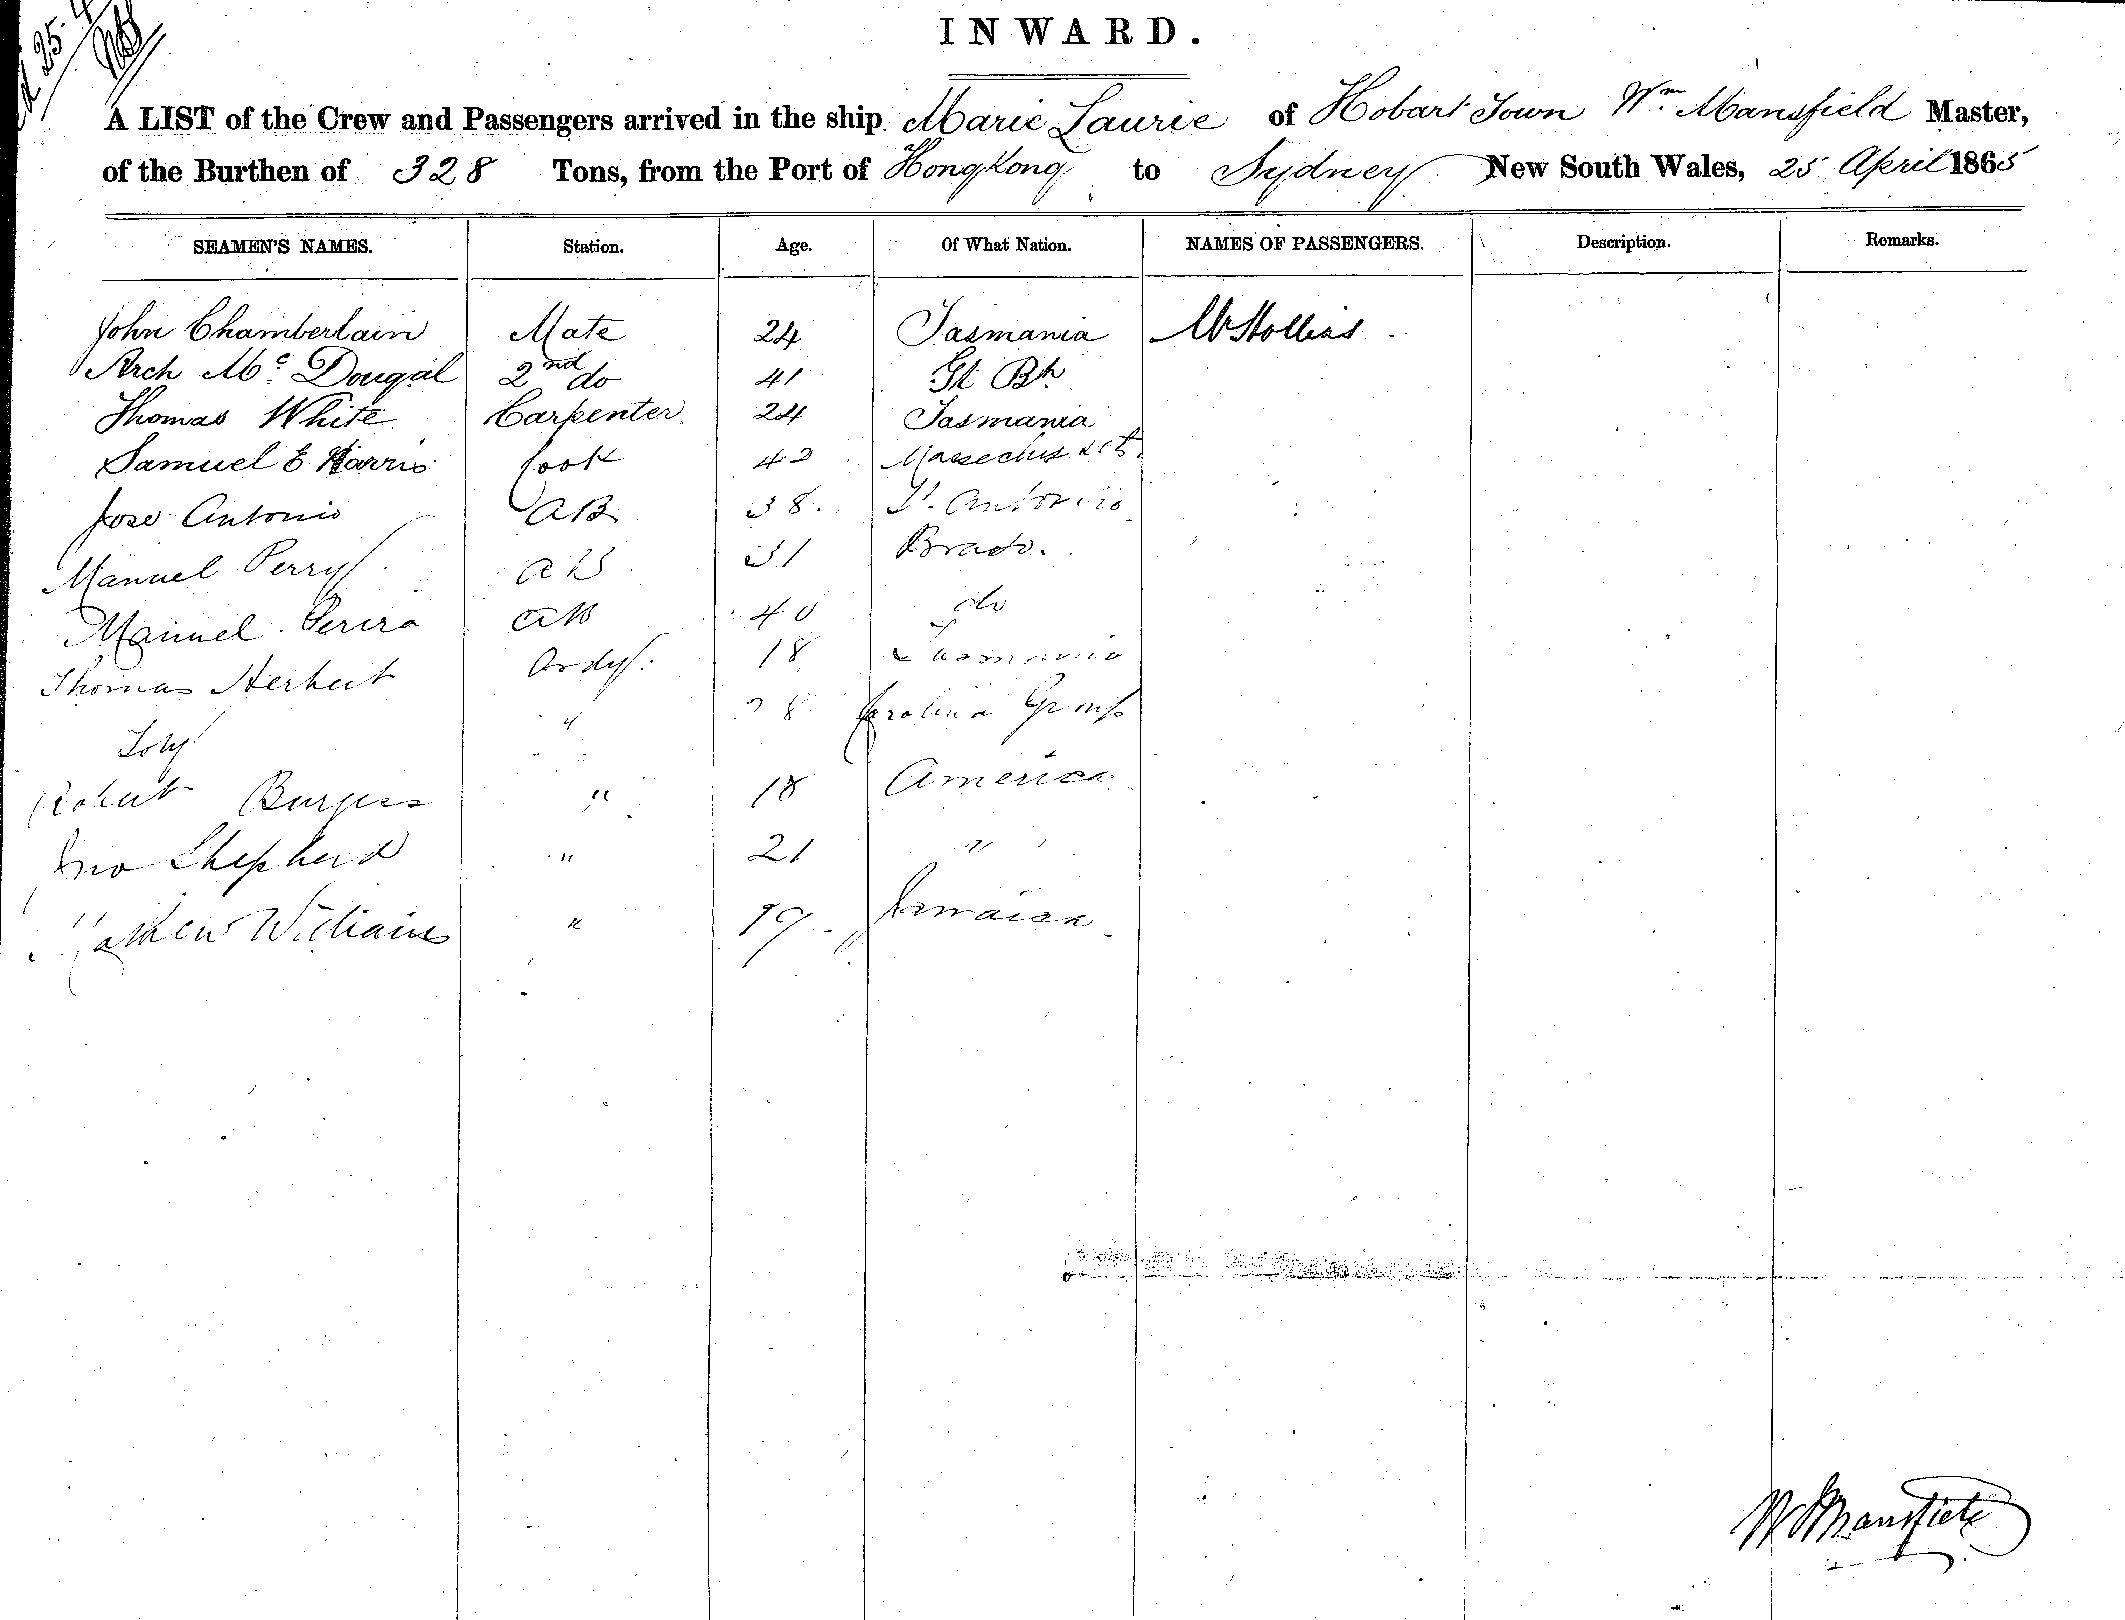 25.4
INWARD.
A LIST of the Crew and Passengers arrived in the ship Marie Laurie of Hobart Town Wm Mansfield Master,
of the Burthen of 328 Tons, from the Port of HongKong to Sydney New South Wales, 25 April 1865
SEAMEN'S NAMES. Station. Age. Of What Nation. NAMES OF PASSENGERS. Description. Remarks.
John Chamberlain Mate 24 Tasmania Mr Hollins
Arch Mc Dougal 2nd do 41 Gt Bn
Thomas White Carpenter 24 Tasmania
Samuel E Harris Cook 42
Jose Antonio AB 38. St. Antonio
Manuel Perry AB 31 Brado.
Manuel Perira AB 40 do
Thomas Herbert Ordy. 18 Tasmania
28 Carolina Group
Robert Burgess " 18 America
Jno Shepherd " 21 "
Mathew Williams " 19 Jamaica
W Mansfield